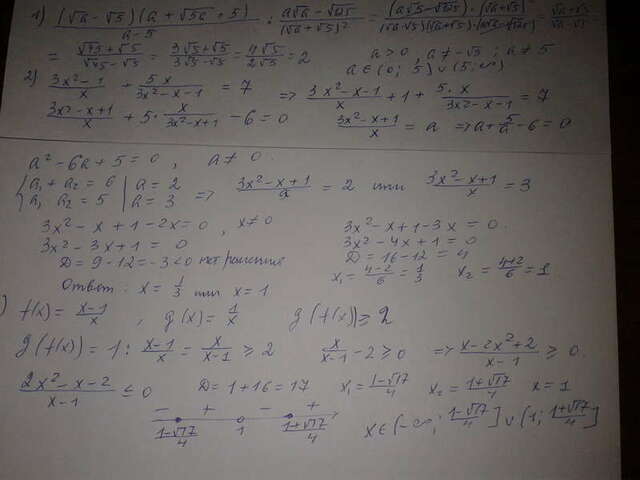 1) (√a - √5)(a + √5a + 5) / (a - 5) : (a√a - √125) / (√a + √5)² =
= (√45 + √5) / (√45 - √5) = (3√5 + √5) / (3√5 - √5) = 4√5 / 2√5 = 2    a > 0, a ≠ -√5; a ≠ 5
a ∈ (0; 5) ∪ (5; ∞)
2) (3x² - 1) / x + 5x / (3x² - x - 1) = 7 => (3x² - x - 1) / x + 1 + 5·x / (3x² - x - 1) = 7
(3x² - x + 1) / x + 5 · x / (3x² - x + 1) - 6 = 0    (3x² - x + 1) / x = a => a + 5/a - 6 = 0
a² - 6a + 5 = 0, a ≠ 0
{ a₁ + a₂ = 6 | a = 2
a₁ a₂ = 5 | a = 3 => (3x² - x + 1) / x = 2 или (3x² - x + 1) / x = 3
3x² - x + 1 - 2x = 0, x ≠ 0    3x² - x + 1 - 3x = 0
3x² - 3x + 1 = 0    3x² - 4x + 1 = 0
D = 9 - 12 = -3 < 0 нет решения    D = 16 - 12 = 4
x₁ = (4 - 2) / 6 = 1/3    x₂ = (4 + 2) / 6 = 1
Ответ: x = 1/3 или x = 1
) f(x) = (x - 1) / x, g(x) = 1/x    g(f(x)) ≥ 2
g(f(x)) = 1 : (x - 1) / x = x / (x - 1) ≥ 2    x / (x - 1) - 2 ≥ 0 => (x - 2x² + 2) / (x - 1) ≥ 0.
(2x² - x - 2) / (x - 1) ≤ 0    D = 1 + 16 = 17    x₁ = (1 - √17) / 4    x₂ = (1 + √17) / 4    x = 1
- + - +
(1 - √17) / 4    1    (1 + √17) / 4    x ∈ (-∞; (1 - √17) / 4] ∪ (1; (1 + √17) / 4]